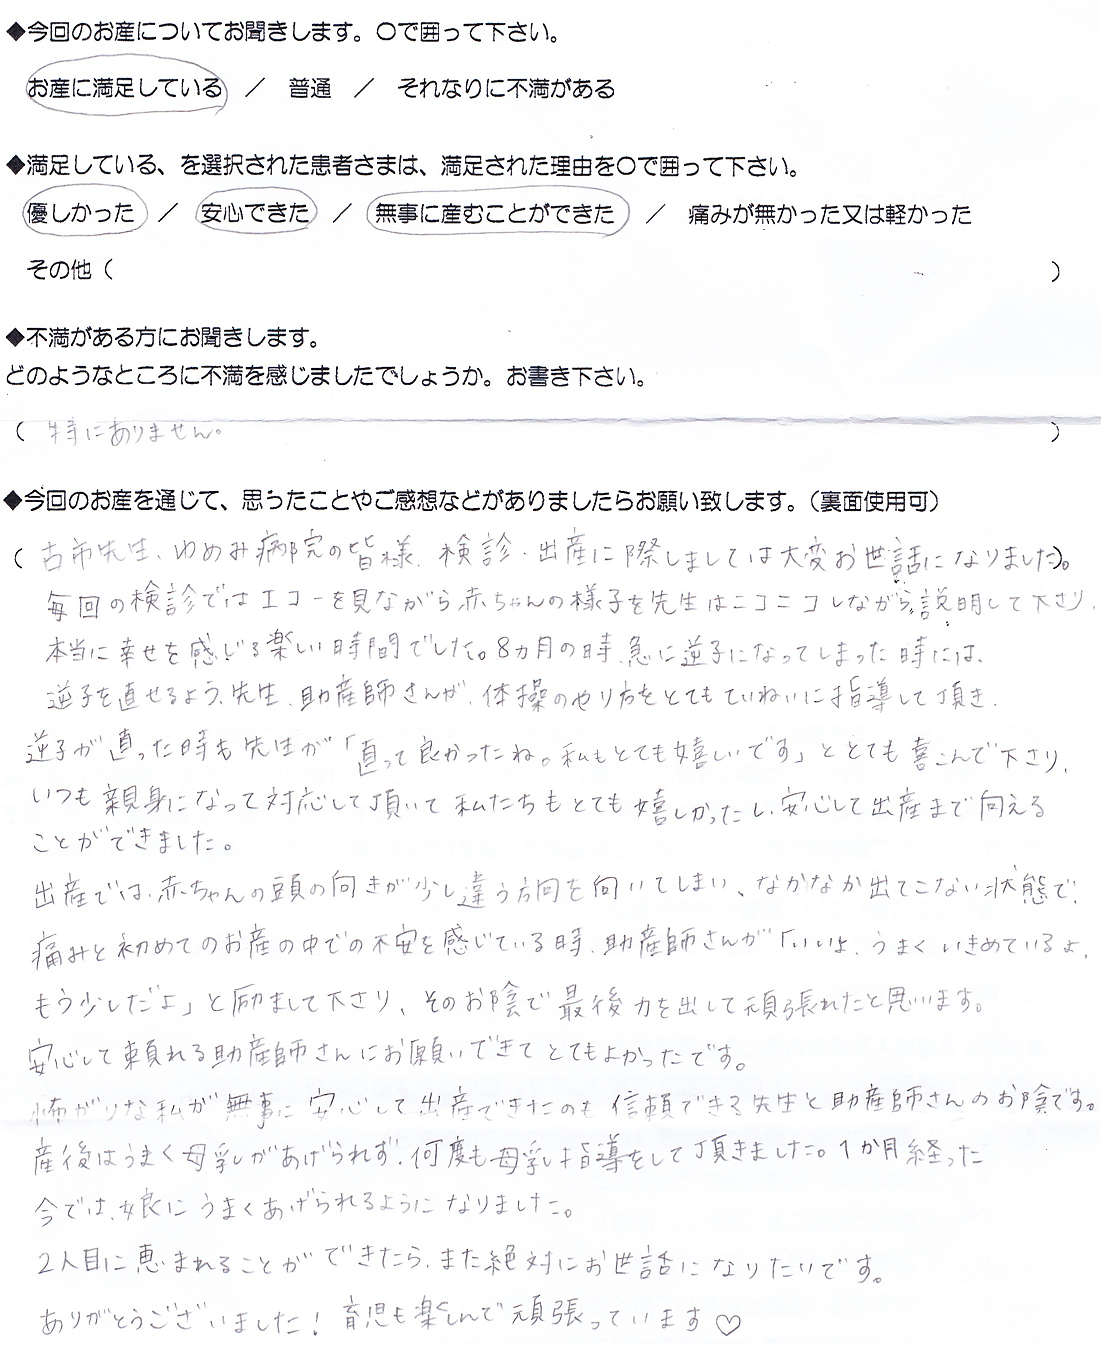 ◆今回のお産についてお聞きします。〇で囲って下さい。
お産に満足している ／ 普通 ／ それなりに不満がある
◆満足している、を選択された患者さまは、満足された理由を〇で囲って下さい。
優しかった ／ 安心できた ／ 無事に産むことができた ／ 痛みが無かった又は軽かった
その他（ ）
◆不満がある方にお聞きします。
どのようなところに不満を感じましたでしょうか。お書き下さい。
（ 特にありません。 ）
◆今回のお産を通じて、思ったことやご感想などがありましたらお願い致します。（裏面使用可）
（ 古市先生、ゆめみ病院の皆様、検診・出産に際しましては大変お世話になりました）。
毎回の検診ではエコーを見ながら赤ちゃんの様子を先生はニコニコしながら説明して下さり、
本当に幸せを感じる楽しい時間でした。8カ月の時、急に逆子になってしまった時には、
逆子を直せるよう、先生、助産師さんが、体操のやり方をとてもていねいに指導して頂き、
逆子が直った時も先生が「直って良かったね。私もとても嬉しいです」ととても喜こんで下さり、
いつも親身になって対応して頂いて私たちもとても嬉しかったし、安心して出産まで向える
ことができました。
出産では、赤ちゃんの頭の向きが少し違う方向を向いてしまい、なかなか出てこない状態で、
痛みと初めてのお産の中での不安を感じている時、助産師さんが「いいよ、うまくいきめているよ、
もう少しだよ」と励まして下さり、そのお陰で最後力を出して頑張れたと思います。
安心して頼れる助産師さんにお願いできてとてもよかったです。
怖がりな私が無事に安心して出産できたのも信頼できる先生と助産師さんのお陰です。
産後はうまく母乳があげられず、何度も母乳指導をして頂きました。1か月経った
今では、娘にうまくあげられるようになりました。
2人目に恵まれることができたら、また絶対にお世話になりたいです。
ありがとうございました！育児も楽しんで頑張っています♡